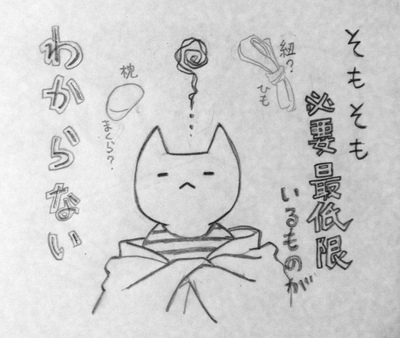 そもそも
必要最低限
いるものが
わからない
紐?
ひも
枕
まくら?